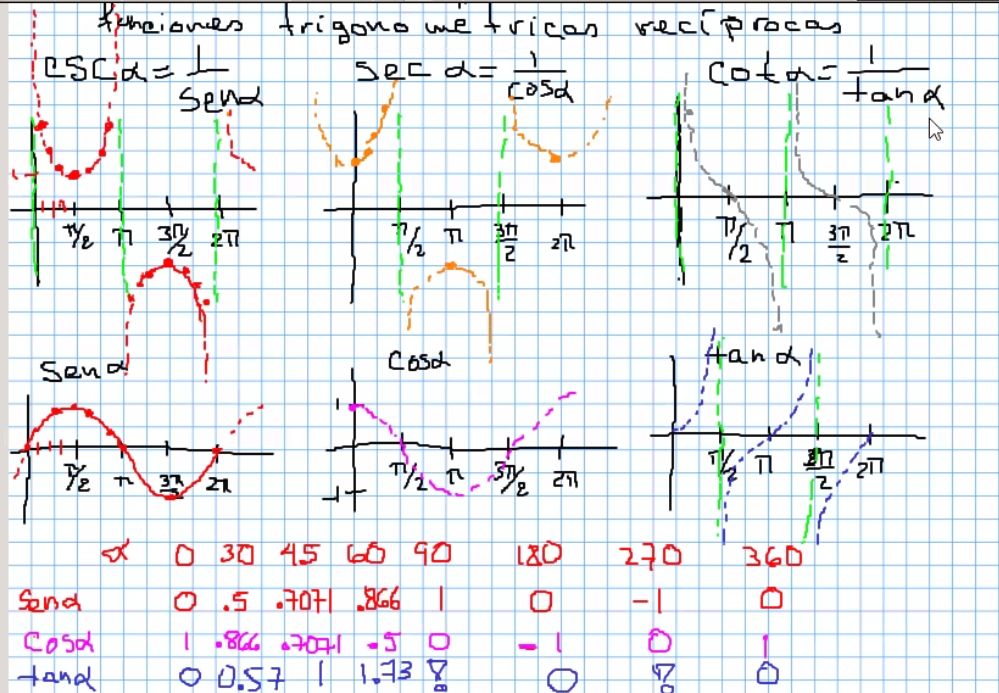 funciones trigonométricas recíprocas
cscα = 1/senα sec α = 1/cosα cotα = 1/tanα
π/2 π 3π/2 2π π/2 π 3π/2 2π π/2 π 3π/2 2π
senα cosα tanα
1
π/2 π 3π/2 2π π/2 π 3π/2 2π π/2 π 3π/2 2π
-1
α 0 30 45 60 90 180 270 360
senα 0 .5 .7071 .866 1 0 -1 0
cosα 1 .866 .7071 .5 0 -1 0 1
tanα 0 0.57 1 1.73 ? 0 ? 0